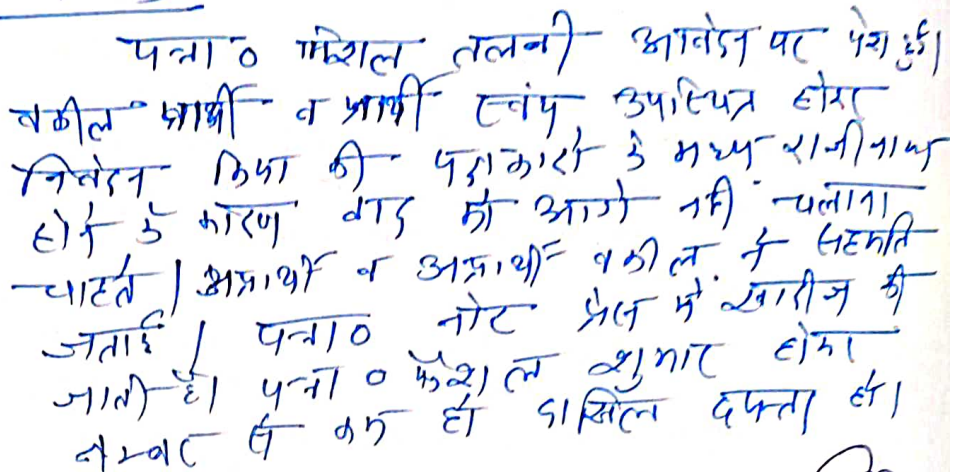 पत्रा० फैशल तलबी आवेदन पर पेश हुई।
वकील प्रार्थी व प्रार्थी स्वंय उपस्थित होकर
निवेदन किया की पक्षकारो के मध्य राजीनामा
होने के कारण वाद को आगे नही चलाना
चाहते। अप्रार्थी व अप्रार्थी वकील ने सहमति
जताई। पत्रा० नोट प्रेस में खारीज की
जाती है। पत्रा० फैशल शुमार होकर
नम्बर से कम हो दाखिल दफ्तर हो।